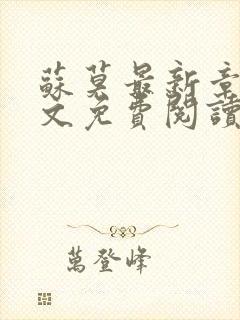 蘇莫最新章
文免費閱讀
萬登峰